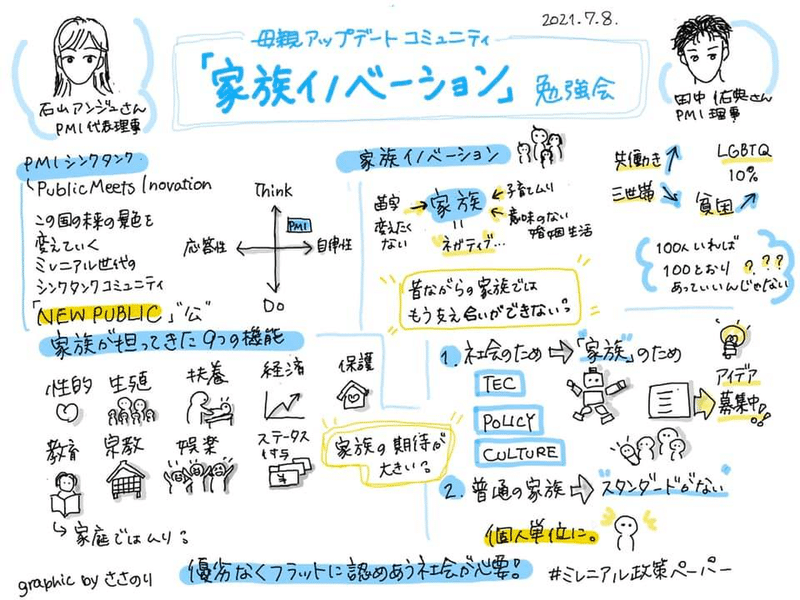 2021.7.8.
母親アップデートコミュニティ
「家族イノベーション」勉強会
石山アンジュさん
PMI代表理事
田中佑典さん
PMI理事
PMIシンクタンク
Public Meets Inovation
この国の未来の景色を
変えていく
ミレニアル世代の
シンクタンクコミュニティ
「NEW PUBLIC」"公"
Think
PMI
応答性
自律性
Do
家族イノベーション
苗字
変えたく
ない
家族
=
ネガティブ…
子育てムリ
意味のない
婚姻生活
共働き
三世帯
LGBTQ
10%
貧困
100人いれば
100とおり???
あっていいんじゃない
昔ながらの家族では
もう支え合いができない?
家族が担ってきた9つの機能
性的
生殖
扶養
経済
保護
教育
宗教
娯楽
ステータス
付与
¥
家庭ではムリ?
家族の期待が
大きい?
1. 社会のため⇒「家族」のため
TEC
POLICY
CULTURE
アイデア
募集中!!
2. 普通の家族⇒"スタンダードがない"
個人単位に。
優劣なくフラットに認めあう社会が必要!
graphic by ささのり
#ミレニアル政策ペーパー